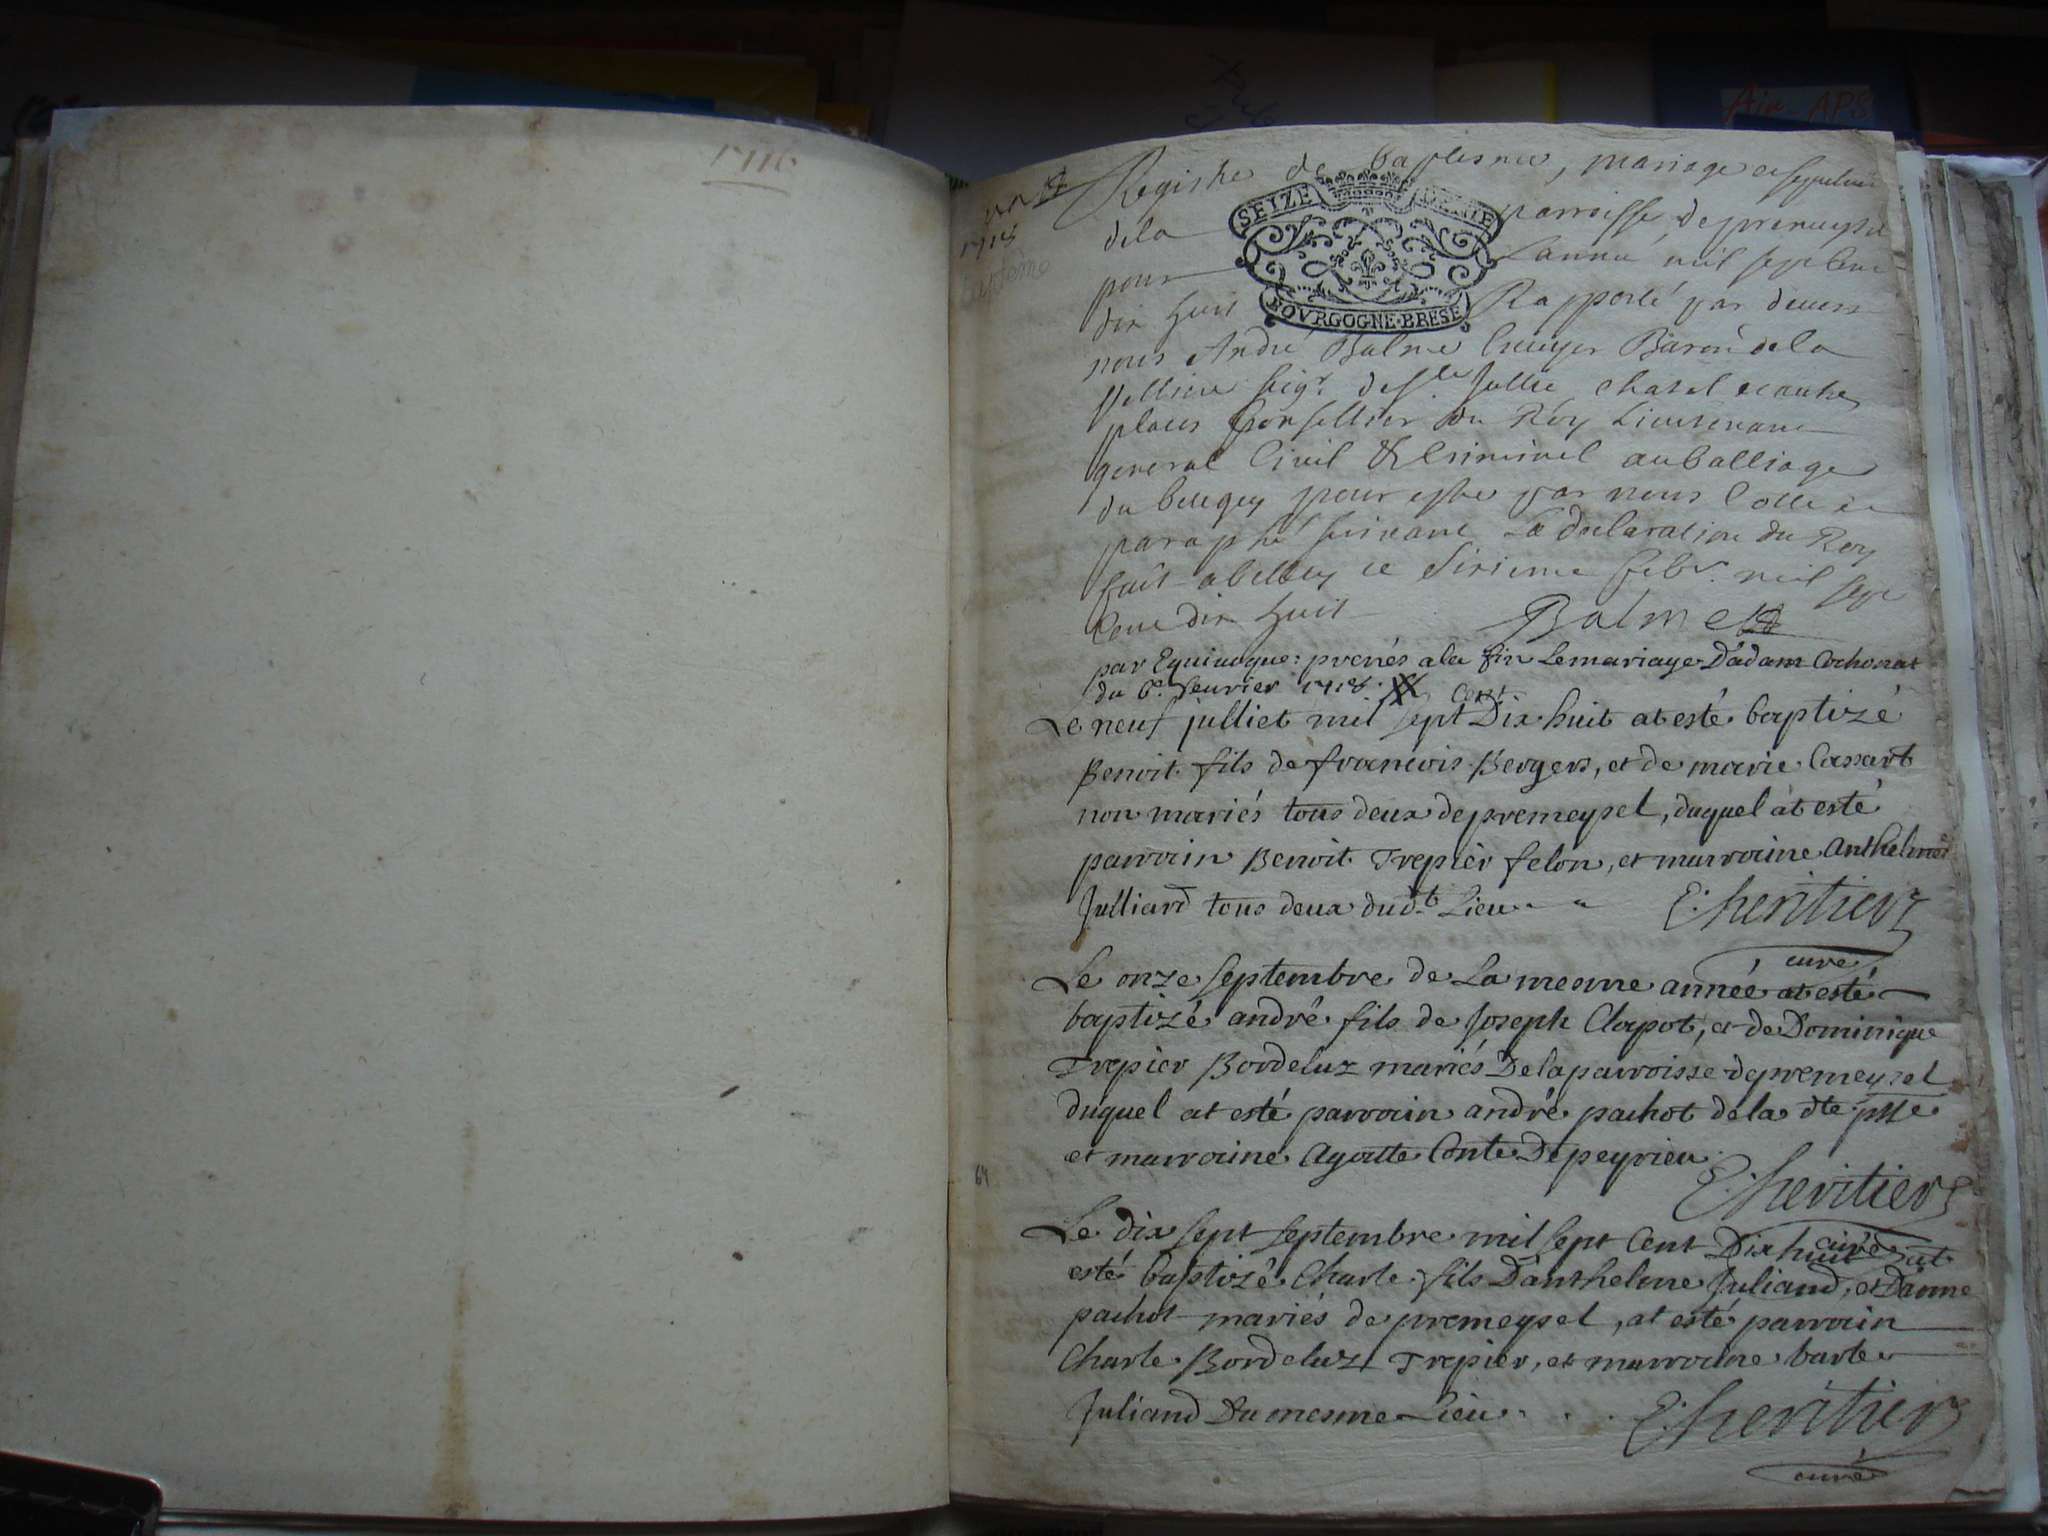 1716
1718
baptème
Registre de baptesme, mariage et sepulture
dela parroisse de premeysel
pour Lannée mil sept cent
dix huit Rapporté par devers
SEIZE DENIE
BOVRGOGNE·BRESE
nous André Balme Ecuyer Baron de la
Velliere seigr. de Ste Jullie chatel et autres
places Conseillier du Roy Lieutenant
general Civil & Criminel au balliage
du beugey pour estre par nous Cotté et
paraphé suivant La declaration du Roy
fait a belley ce sixieme febvr. mil sept
Cent dix huit Balme
par Equiuoque: prenés a la fin Le mariage D'adam Cochonat
du 6e. feurier 1718.
Le neuf julliet mil sept Cent Dix huit at esté baptizé
Benoit fils de francois Bergers, et de marie Cassart
non mariés tous deux de premeysel, duquel at esté
parrain Benoit Trepier felon, et marraine Anthelmé
Julliard tous deux dud.t Lieu.
E. heritier
curé
Le onze septembre de La mesme année at esté
baptizé andré fils de Joseph Clapot, et de Dominique
Trepier Bordeluz mariés De la parroisse de premeysel
duquel at esté parrain andré pachot de la dte psse
et marraine Agatte Conte De peyrieu.
E. heritier
curé
64
Le dix sept septembre mil sept Cent Dix huit at
esté baptizé Charle fils D'anthelme Juliand, et D'anne
pachot mariés de premeysel, at esté parrain
Charle Bordeluz Trepier, et marraine barbe
Juliand Du mesme Lieu . . .
E. heritier
curé
Air APS